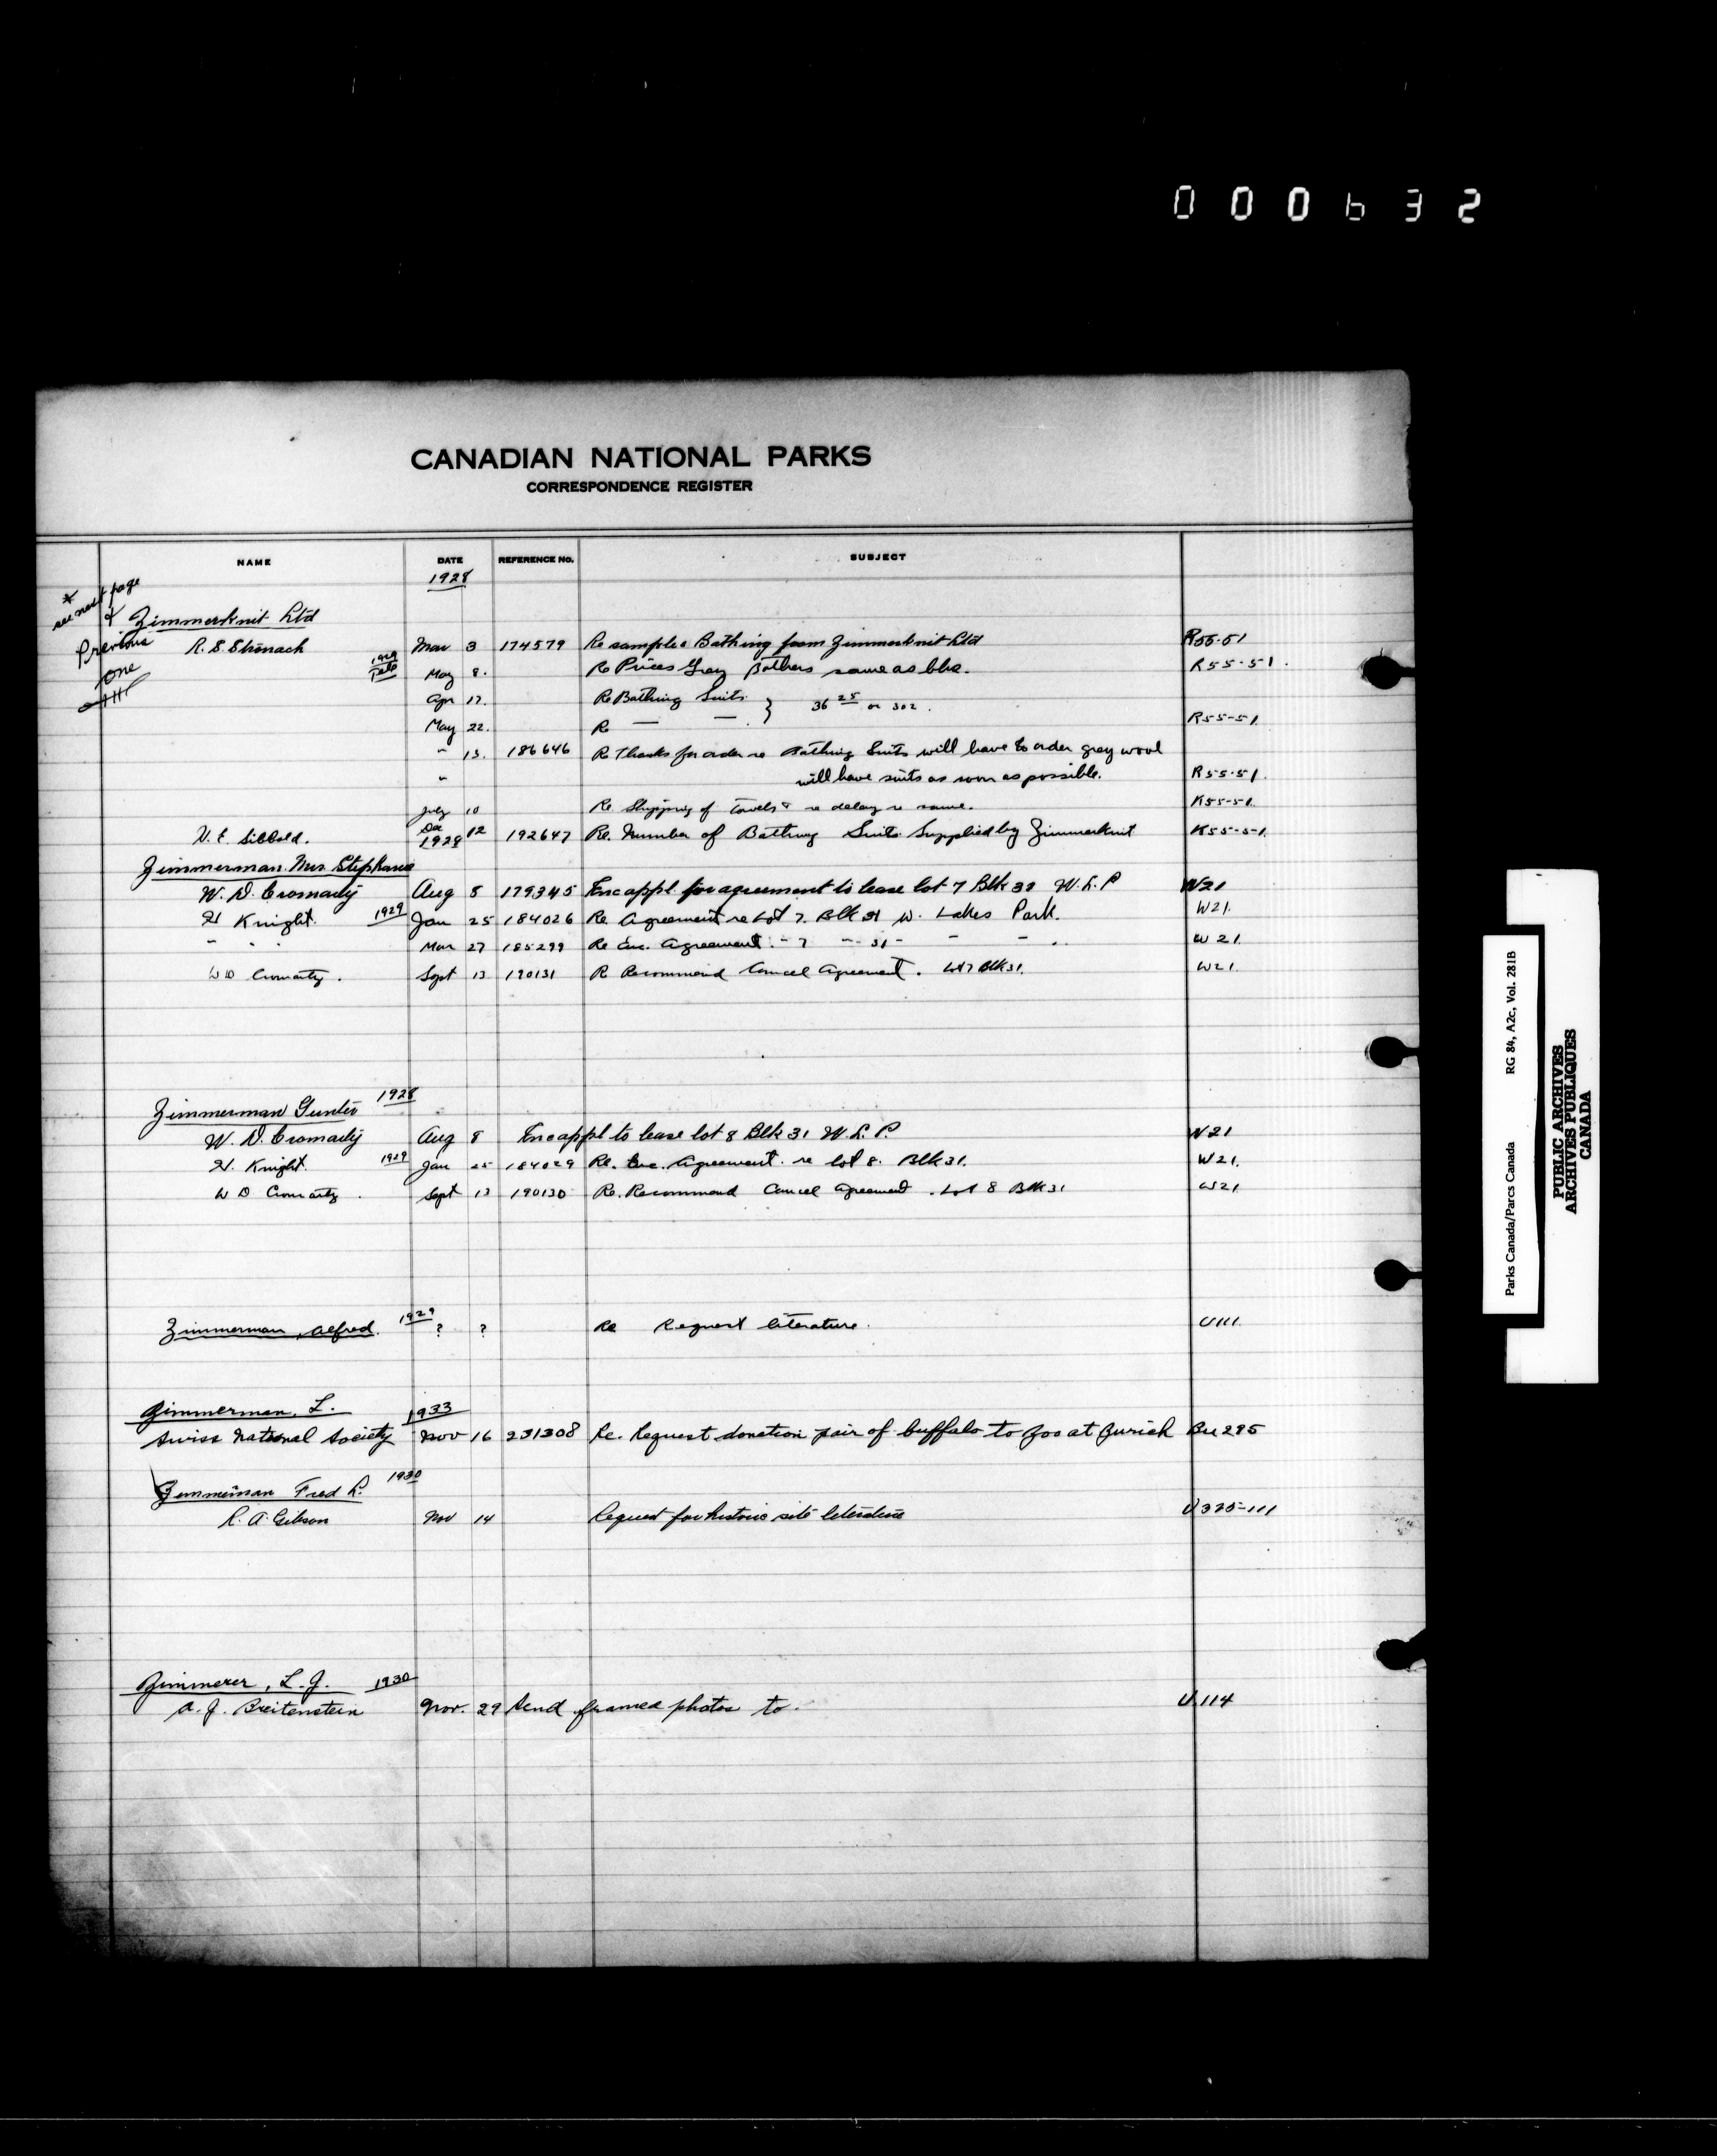 000632
CANADIAN NATIONAL PARKS
CORRESPONDENCE REGISTER
NAME DATE REFERENCE No. SUBJECT
1928
* see next page
& Zimmerknit Ltd
Previous one
R. S. Stronach Mar 3 174579 Re samples Bathing from Zimmerknit Ltd R55-51
1929 May 8. Re Prices Grey Bathers same as blue. R55-51.
Apr 17. Re Bathing Suits } 36 25 or 302.
May 22. Re — — R55-51.
" 13. 186646 Re thanks for order re Bathing Suits will have to order grey wool
" will have suits as soon as possible. R55-51.
July 10 Re Shipping of towels & re delay re same. R55-51.
N. E. Sibbald. Dec 12 192647 Re. Number of Bathing Suits Supplied by Zimmerknit R55-51
1928
Zimmerman Mrs Stephanie
W. D. Cromarty Aug 8 179345 Enc appl. for agreement to lease lot 7 Blk 31 W.L.P W21
H Knight. 1929 Jan 25 184026 Re Agreement re Lot 7. Blk 31 W. Lakes Park. W21.
" " " Mar 27 185299 Re Enc. Agreement. " 7 " 31 " " " W21.
W D Cromarty. Sept 13 190131 R Recommend Cancel Agreement. Lot 7 Blk 31. W21.
Zimmerman Gunter 1928
W. D. Cromarty Aug 8 Enc appl to lease lot 8 Blk 31 W.L.P. W21
H. Knight. 1929 Jan 25 184029 Re. Enc. Agreement. re lot 8. Blk 31. W21.
W D Cromarty. Sept 13 190130 Re. Recommend Cancel Agreement. Lot 8 Blk 31 W21
Zimmerman, Alfred. 1929 ? ? Re Request literature. U111.
Zimmerman, L. 1933
Swiss National Society Nov 16 231308 Re. Request donation pair of buffalo to zoo at Zurich Bu 295
Zimmerman Fred L. 1930
R. A. Gibson Nov 14 Request for historic site literature U325-111
Zimmerer, L. J. 1930
A. J. Breitenstein Nov. 29 Send framed photos to. U.114
Parks Canada/Parcs Canada RG 84, A2c, Vol. 281B
PUBLIC ARCHIVES
ARCHIVES PUBLIQUES
CANADA